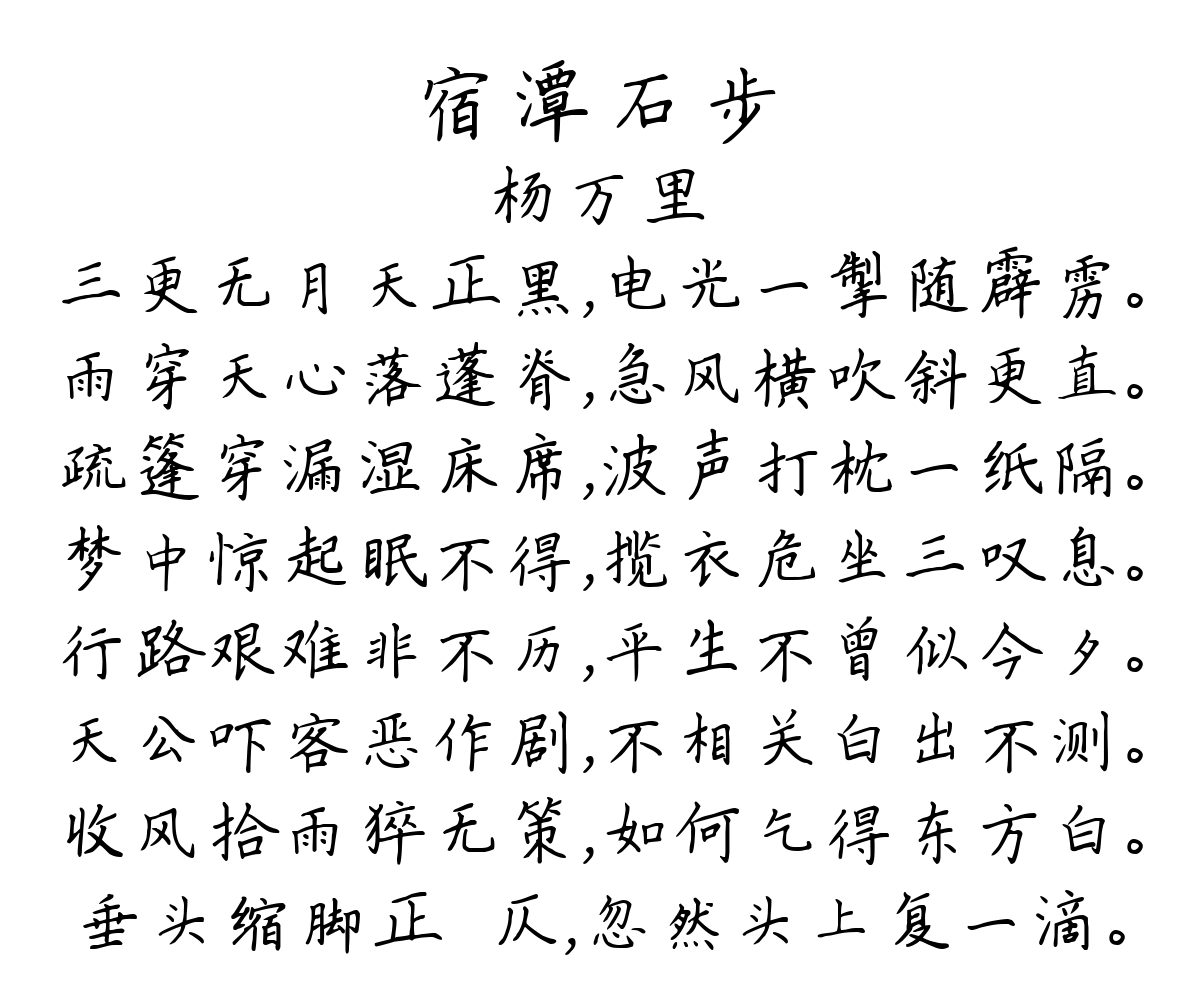 宿潭石步
杨万里
三更无月天正黑,电光一掣随霹雳。
雨穿天心落蓬脊,急风横吹斜更直。
疏篷穿漏湿床席,波声打枕一纸隔。
梦中惊起眠不得,揽衣危坐三叹息。
行路艰难非不历,平生不曾似今夕。
天公吓客恶作剧,不相关白出不测。
收风拾雨猝无策,如何乞得东方白。
垂头缩脚正 仄,忽然头上复一滴。